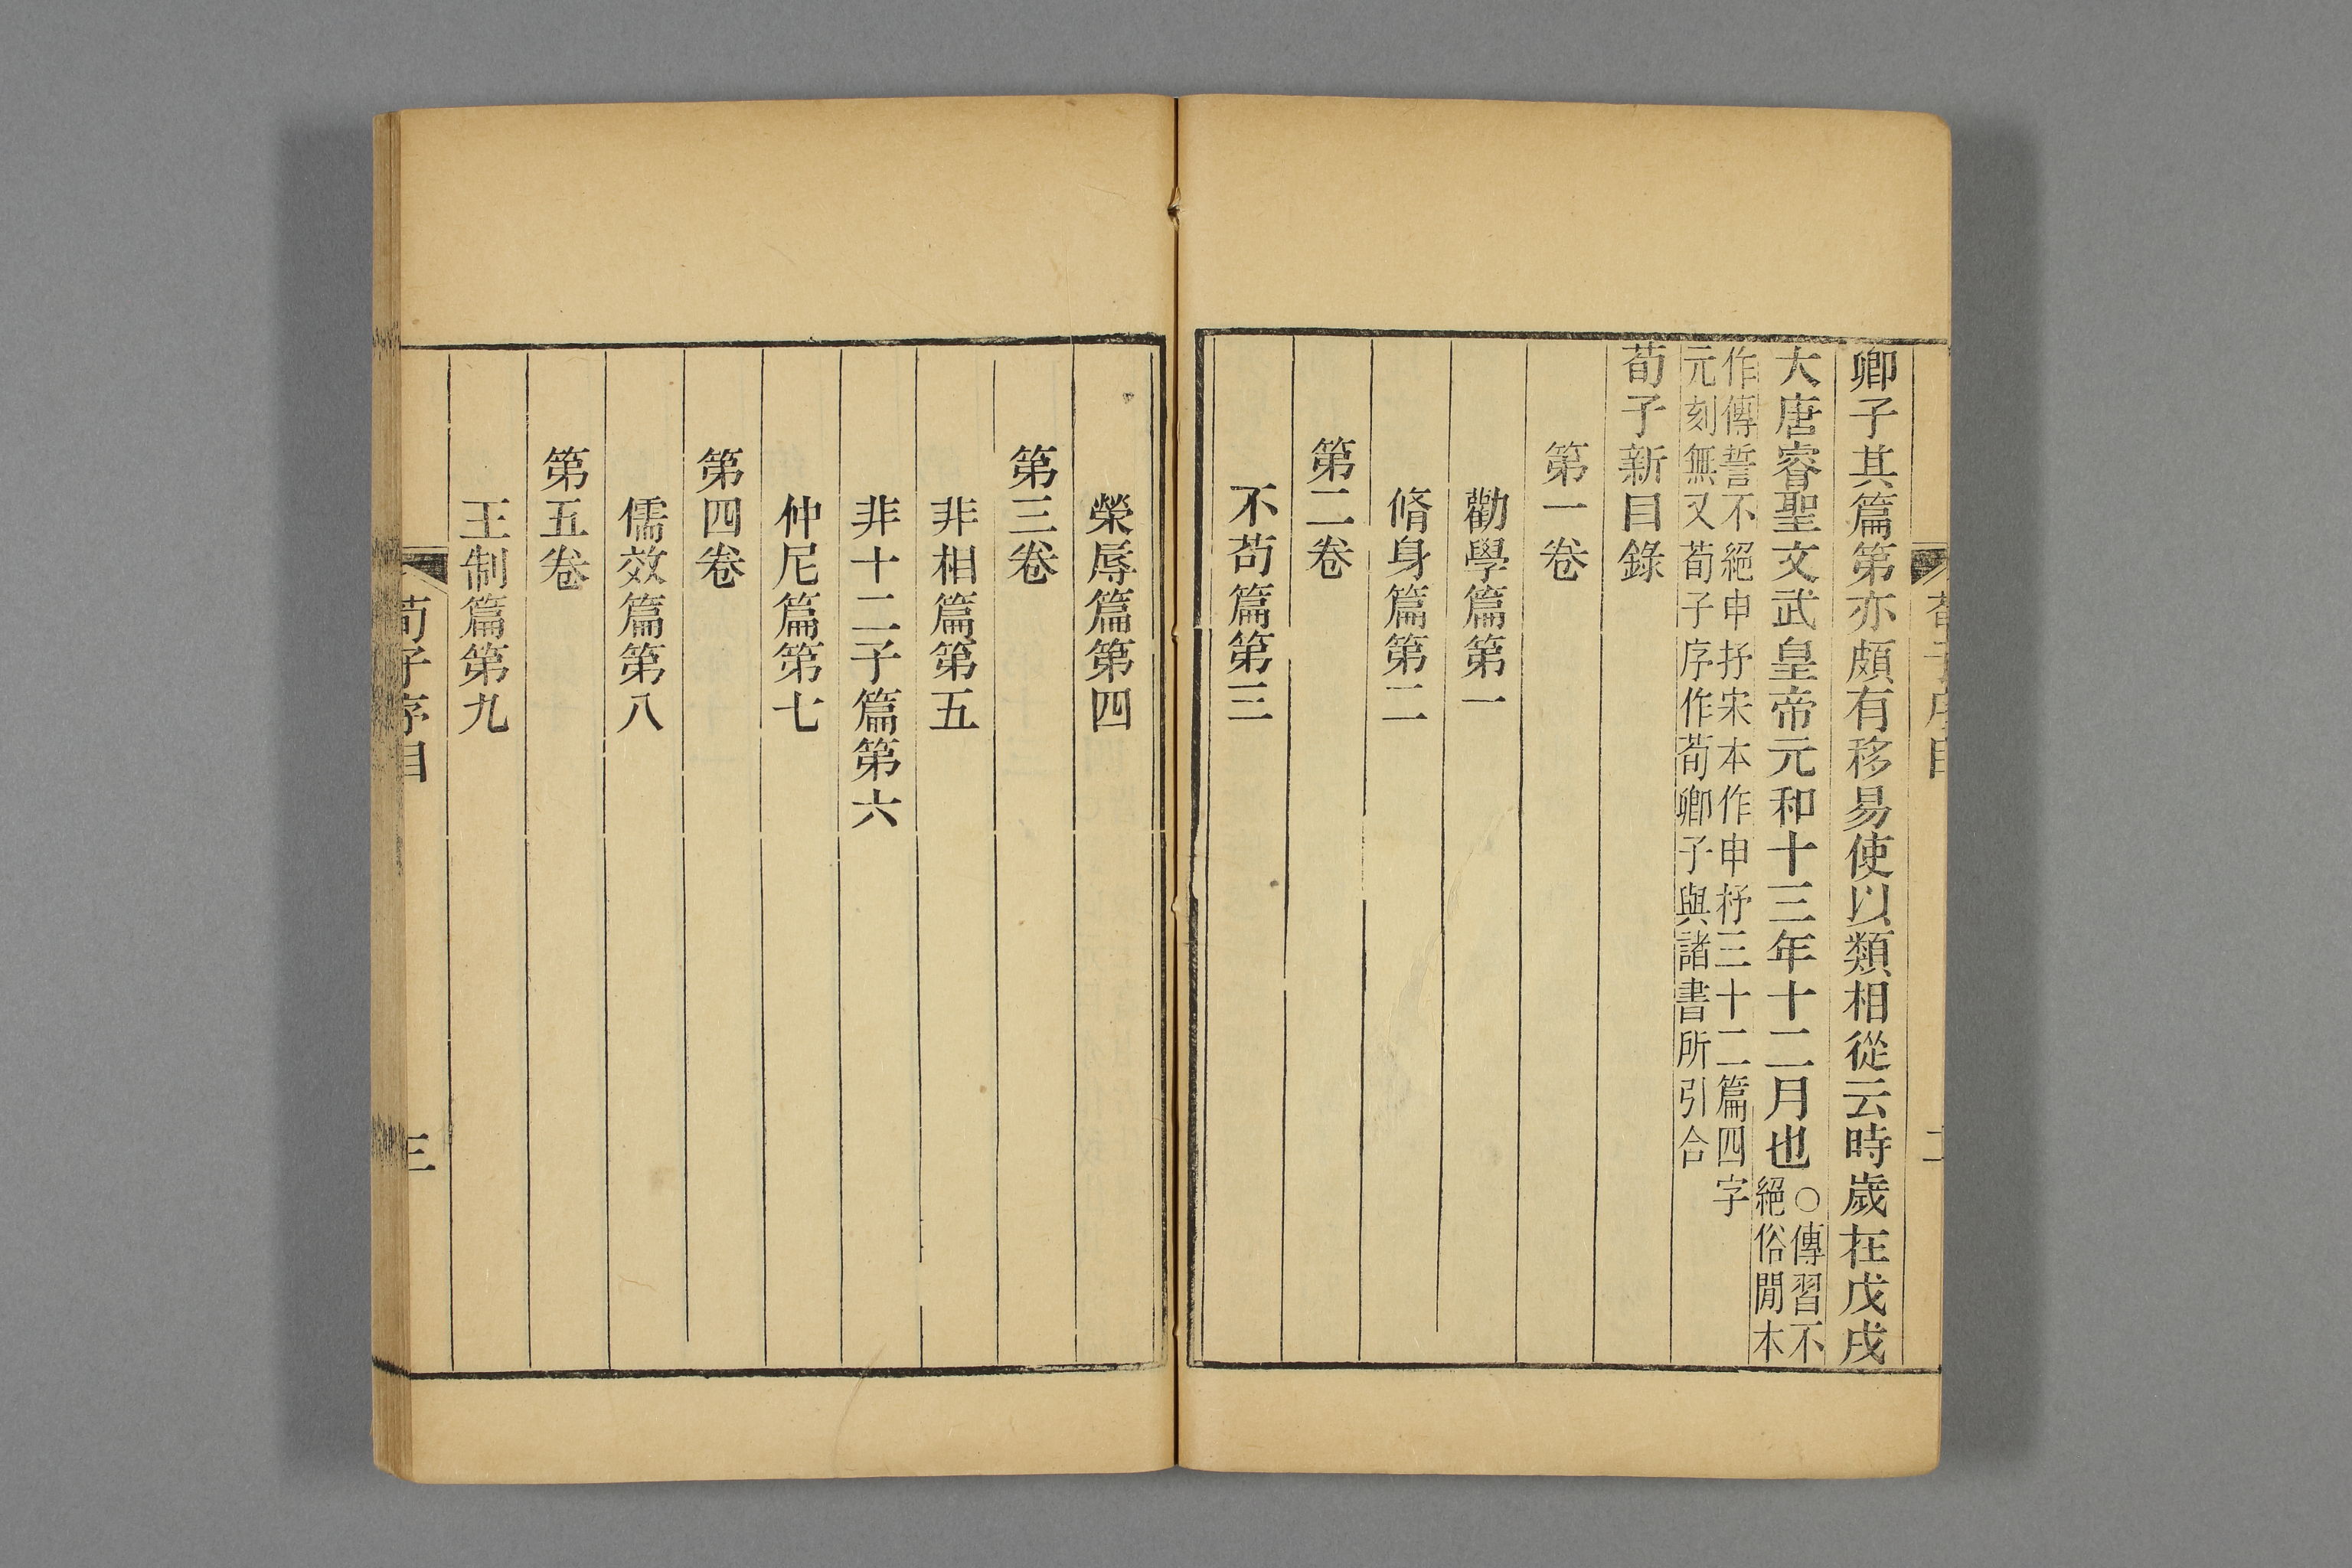 卿子其篇第亦頗有移易使以類相從云時歲在戊戌
大唐睿聖文武皇帝元和十三年十二月也
○傳習不
絕俗閒本
作傳誓不絕申抒宋本作申杼三十二篇四字
元刻無又荀子序作荀卿子與諸書所引合
荀子新目錄
第一卷
勸學篇第一
脩身篇第二
第二卷
不苟篇第三
榮辱篇第四
第三卷
非相篇第五
非十二子篇第六
仲尼篇第七
第四卷
儒效篇第八
第五卷
王制篇第九
荀子序目
三